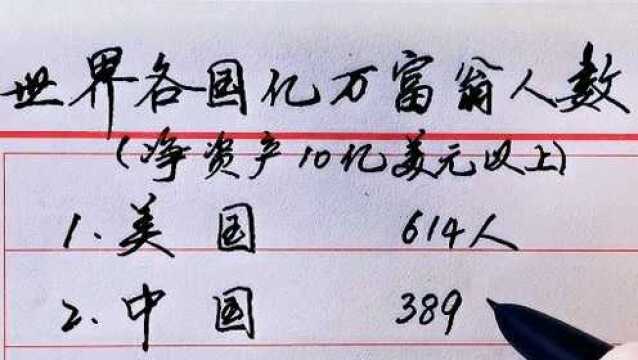 世界各国亿万富翁人数
(净资产10亿美元以上)
1.美国 614人
2.中国 389